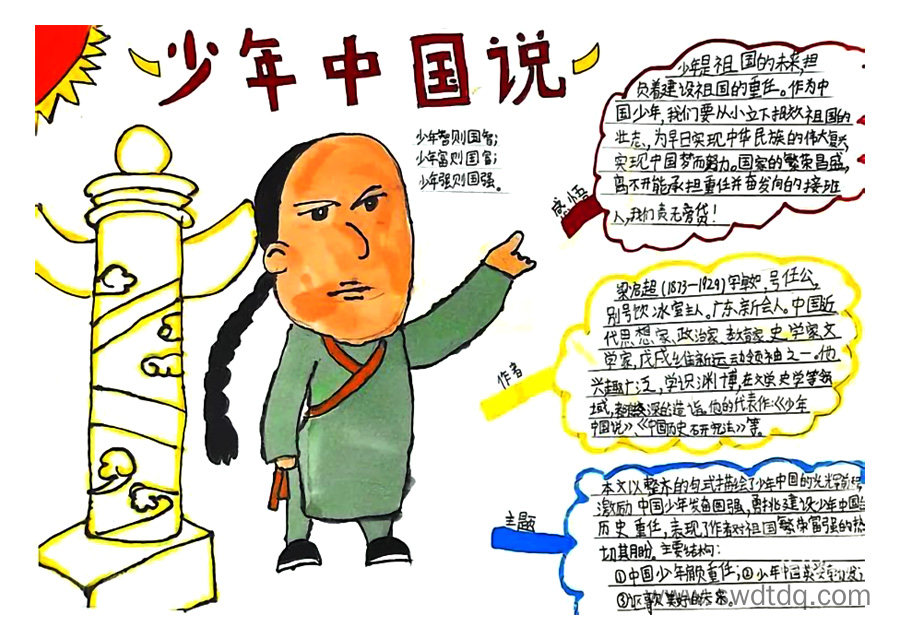 少年中国说
少年智则国智；
少年富则国富；
少年强则国强。
感悟
少年是祖国的未来，担
负着建设祖国的重任。作为中
国少年，我们要从小立下报效祖国的
壮志，为早日实现中华民族的伟大复兴
实现中国梦而努力。国家的繁荣昌盛，
离不开能承担重任并奋发向的接班
人，我们责无旁贷！
作者
梁启超（1873—1929）字卓如，号任公，
别号饮冰室主人。广东新会人。中国近
代思想家、政治家、教育家、史学家、文
学家，戊戌维新运动领袖之一。他
兴趣广泛，学识渊博，在文学史学等领
域，都有深的造诣。他的代表作：《少年
中国说》《中国历史研究法》等。
主题
本文以整齐的句式描绘了少年中国的光光前程，
激励中国少年发奋图强，勇挑建设少年中国
历史重任，表现了作者对祖国繁荣富强的热
切其盼。主要结构：
①中国少年肩负重任；②少年中国
③讴歌美好的未来。
www.swdtdq.com